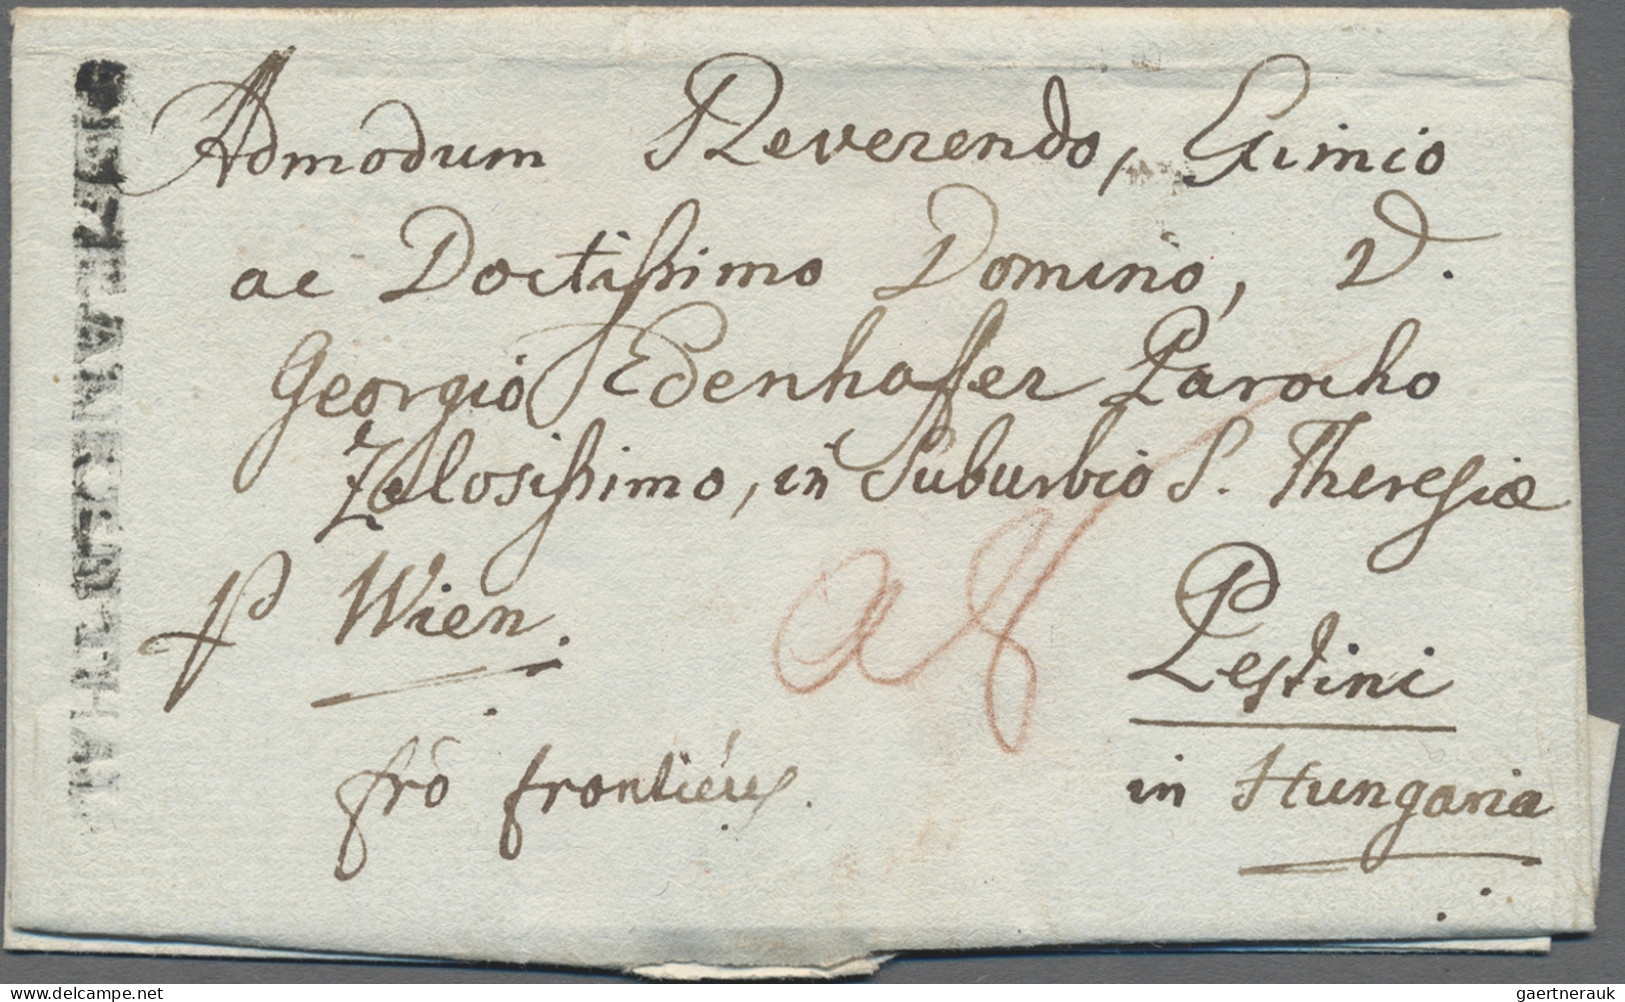 Admodum Reverendo, Eximio
ac Doctissimo Domino, D.
Georgio Edenhoffer Parocho
Zelosissimo, in Suburbio S. Theresiæ
p Wien.
Pestini
frō frontieus.
in Hungaria
gaertnerauk @ www.delcampe.net